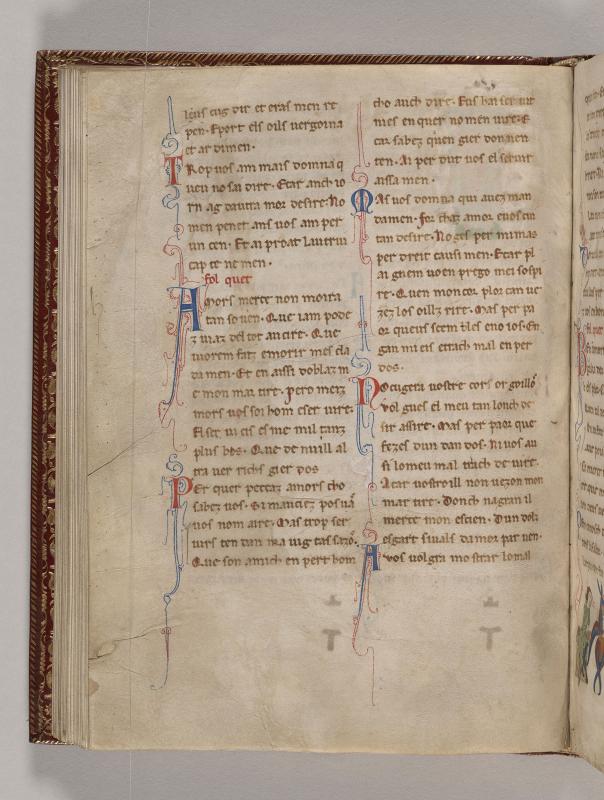 pen. E port els oils vergoina
et ar dimen.
Trop vos am mais domna q
ueu no sai dire. Et ar anch io
rn ag dautra mor desire. No
men penet ans vos am per
un cen. Et ai proat lautrui
cap te ne men.
fol quet
Amors merce non moira
tan soven. Que iam pode
z viaz del tot aucire. Que
vivrem faz emorir mes cla
da men. Et en aissi doblaz m
e mon mar tire. Pero merz
mors vos soi hom e ser vire.
El ser vi cis es me mil tanz
plus bos. Que de nuill al
tra ver richs gier dos
Per quer peccaz amors cho
sabez vos. Si mauciez pos va
vos nom aire. Mas trop ser
virs ten dan ma vig tas sazo.
Que son amich en pert hom
cho auch dire. Eus hai ser vit
mes en quer no men vire. E
car sabez quen gier don nen
ten. Ai per dut vos el servir
aissa men.
Mas vos domna qui avez man
damen. for chaz amor e vos cui
tan desire. No ges per mi mas
per dreit causi men. Et ar pl
ai gnem vo en prego mei sospi
re. Quen mon cor plor can ve
zez los oillz rire. Mas per pa
or queus seem bles eno ios. En
gan mi eis etrach mal en per
dos.
No cugera vostre cors orgoillos
vol gues el meu tan lonch de
sir assire. Mas per paor que
fezes dun dan dos. Ni vos au
A tar vostroill non vezon mon
mar tire. Donch nagran il
merce mon escien. Dun dolz
esgart sivals damor par ven.
A vos volgra mostrar lo mal